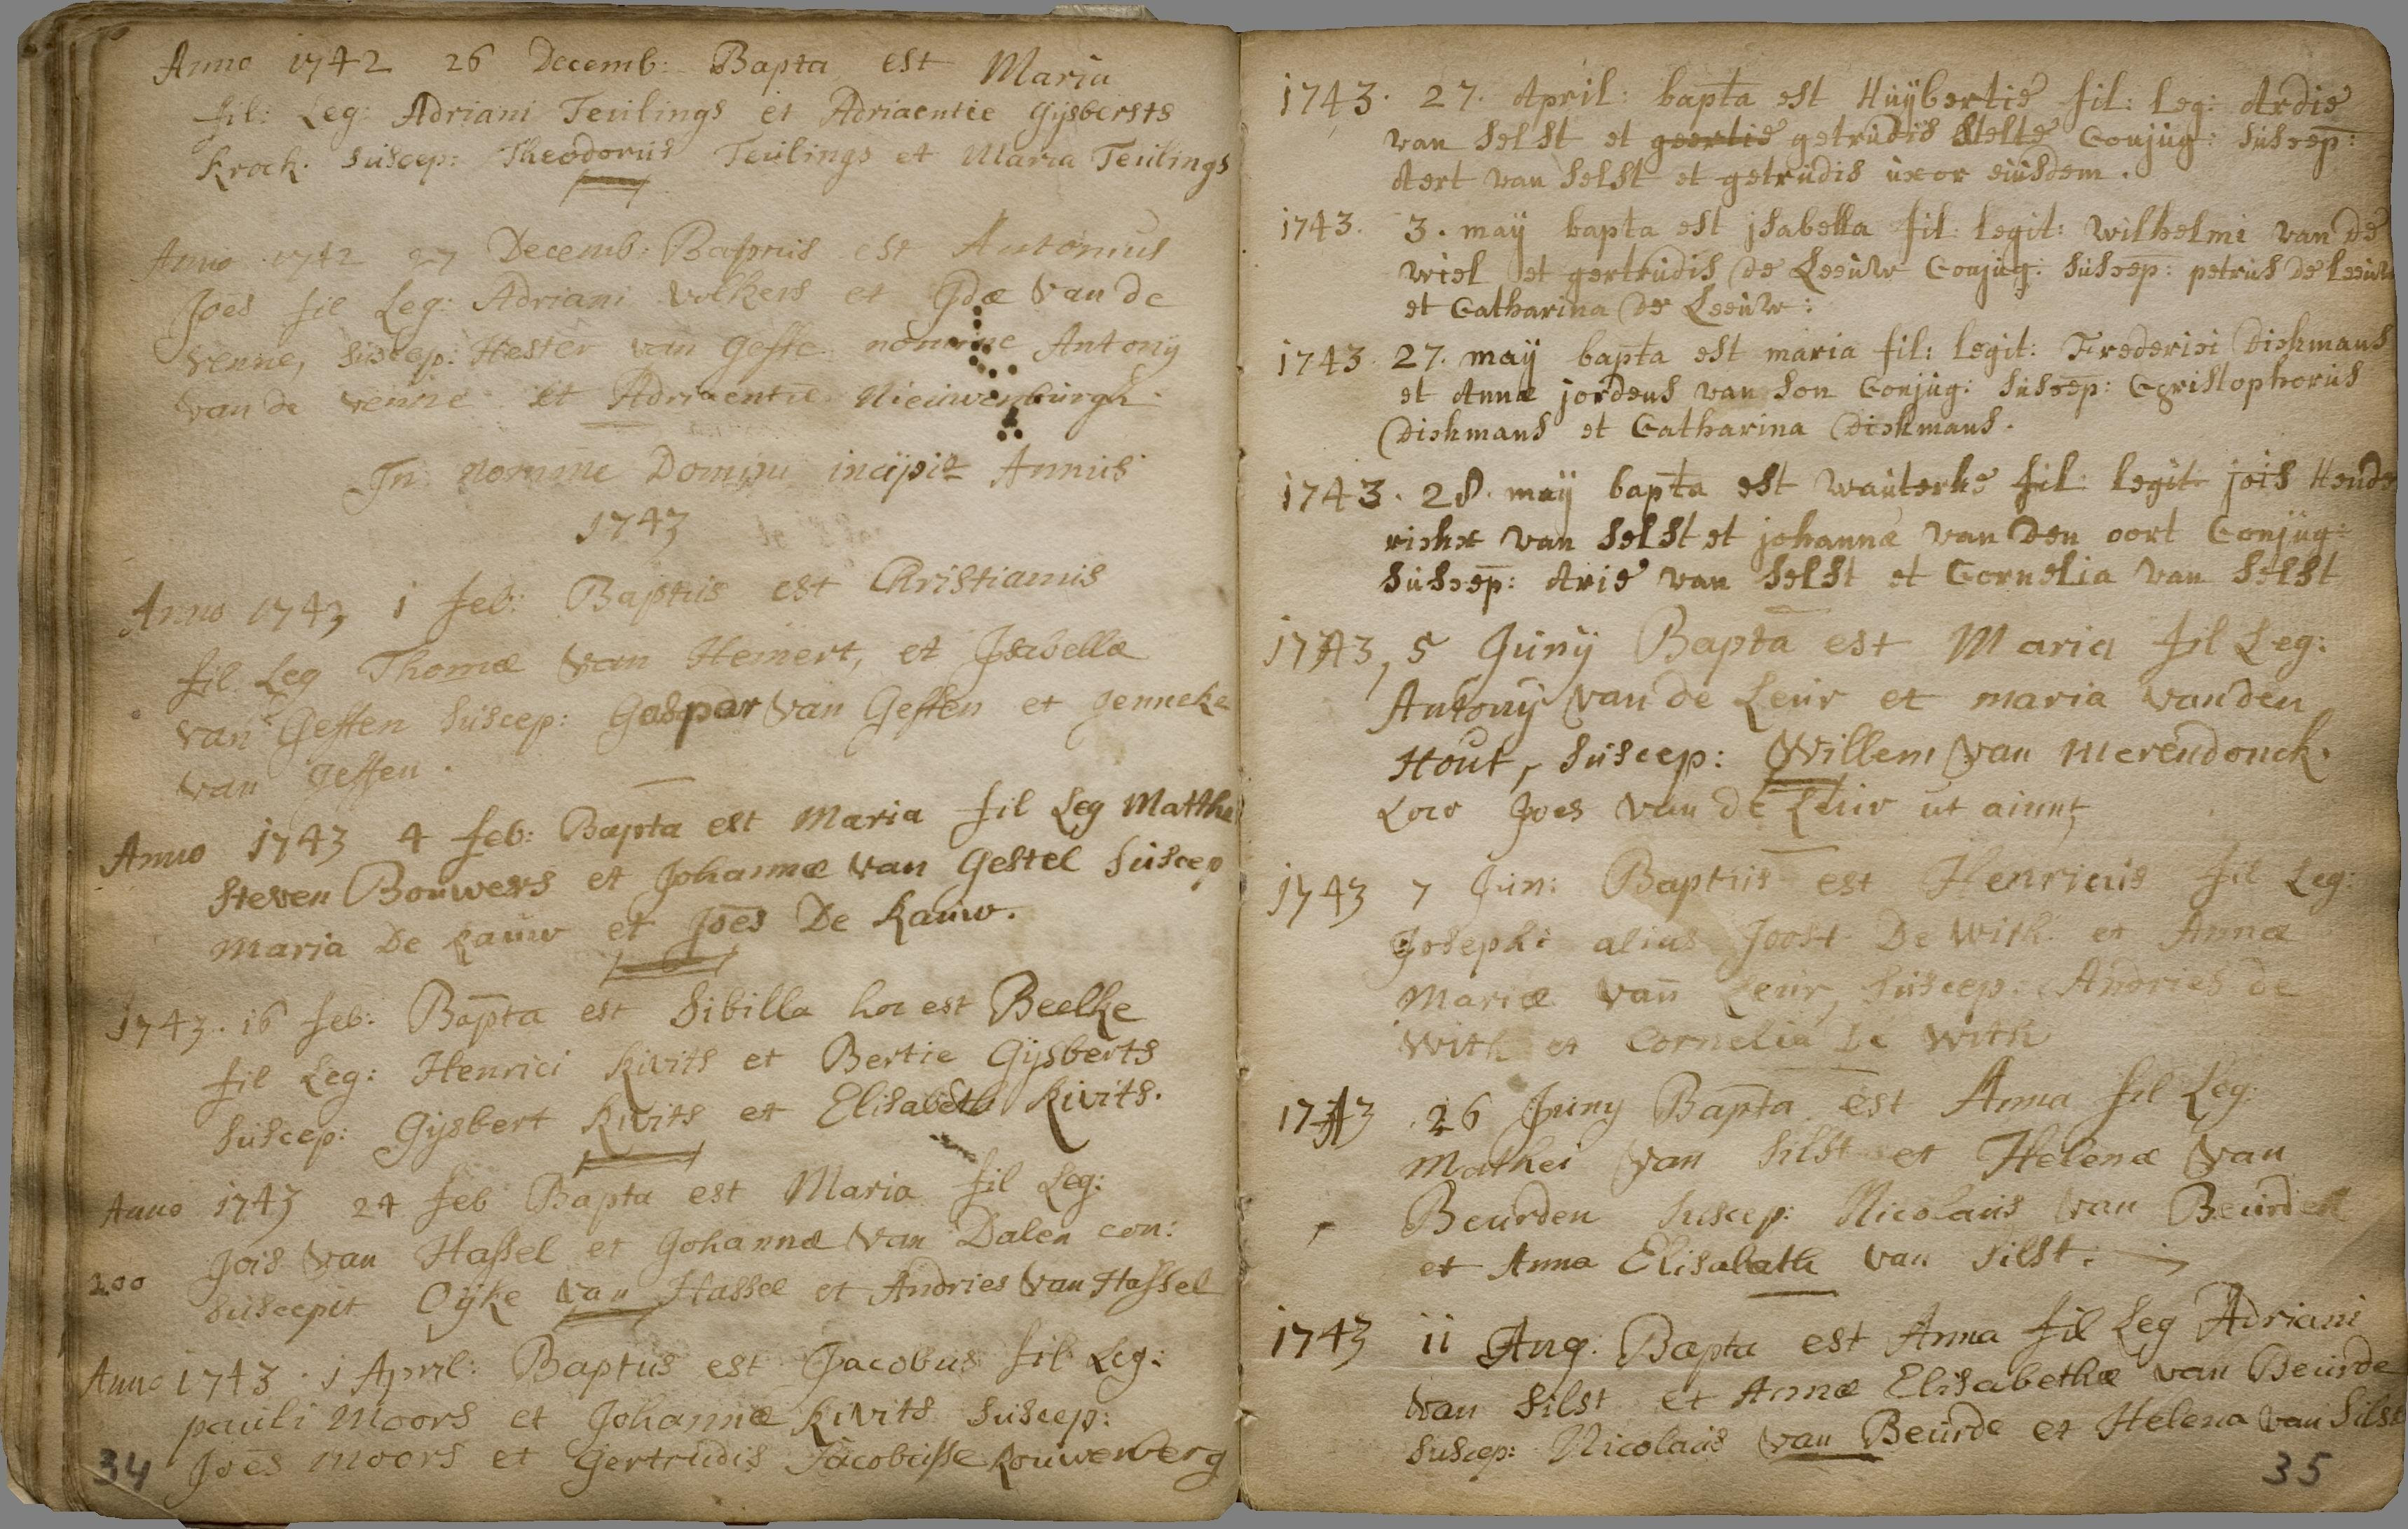 Anno 1742 26 Decemb: Bapta est Maria
fil: Leg: Adriani Teulings et Adriaentie Gijsberts
Krock. Suscep: Theodorus Teulings et Maria Teulings
Anno 1742 27 Decemb: Baptus est Antonius
Joes fil Leg: Adriani Volkers et Idæ Van de
Venne, Suscep: Hester van Geffe nomine Antony
van de Venne et Adriaentie Nieuwenburgh
In nomine Domini incipit Annus
1743
Anno 1743 1 feb: Baptus est Christianus
fil Leg Thomæ Van Hemert, et Isabellæ
van Geffen Suscep: Gaspar Van Geffen et Jenneke
Van Geffen.
Anno 1743 4 feb: Bapta est Maria fil Leg Matthe
Steven Bouwers et Johannæ Van Gestel Suscep
Maria De Kauw et Joes De Kauw.
1743. 16 feb: Bapta est Sibilla hoc est Beelke
fil Leg: Henrici Kivits et Bertie Gijsberts
Suscep: Gijsbert Kivits et Elisabeth Kivits.
Anno 1743 24 feb Bapta est Maria fil Leg:
Jois Van Hassel et Johannæ Van Dalen con:
200 Suscepit Oijke Van Hassel et Andries Van Hassel
Anno 1743. 1 April: Baptus est Jacobus fil Leg:
pauli Moors et Johannæ Kivits Suscep:
Joes Moors et Gertrudis Jacobusse Kouwenberg
34
1743. 27. April: bapta est Huijbertie fil: leg: Ardie
van Selst et geertie getrudis Stelte Conjug: Suscep:
Aert van Selst et getrudis uxor eiusdem.
1743. 3. maij bapta est jsabella fil: legit: wilhelmi van de
wiel et gertrudis de Leeuw Conjug: Suscep: petrus de leeuw
et Catharina de Leeuw:
1743. 27. maij bapta est maria fil: legit: Frederici Dickmans
et Annæ jordens van Son Conjug: Suscep: Cristophorus
Dickmans et Catharina Dickmans.
1743. 28. maij bapta est wauterke fil: legit jois Hende
rickx van Selst et johannæ van Den oort Conjug:
Suscep: Arie van Selst et Cornelia van Selst
1743, 5 Junij Bapta est Maria fil Leg:
Antonij Van de Leur et maria Vanden
Hout, Suscep: Willem Van Merendonck.
Loco Joes Van de Leur ut aiunt
1743 7 Jun: Baptus est Henricus fil Leg:
Josephi alias Joost De With et Annæ
Mariæ Van Leur, Suscep: Andries de
With et Cornelia De With
1743 26 Juny Bapta est Anna fil Leg:
Mathei Van Silst et Helenæ Van
Beurden Suscep: Nicolaus Van Beurden
et Anna Elisabath Van Silst.
1743 11 Aug: Bapta est Anna fil Leg Adriani
Van Silst et Annæ Elisabethæ van Beurde
Suscep: Nicolaus Van Beurde et Helena Van Silst
35